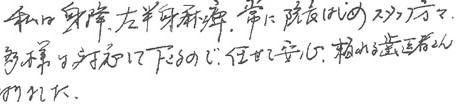 私は身障、左半身麻痺、常に院長はじめスタッフ方々、
多様な対応して下さるので、任せて安心、頼れる歯医者さん
です。